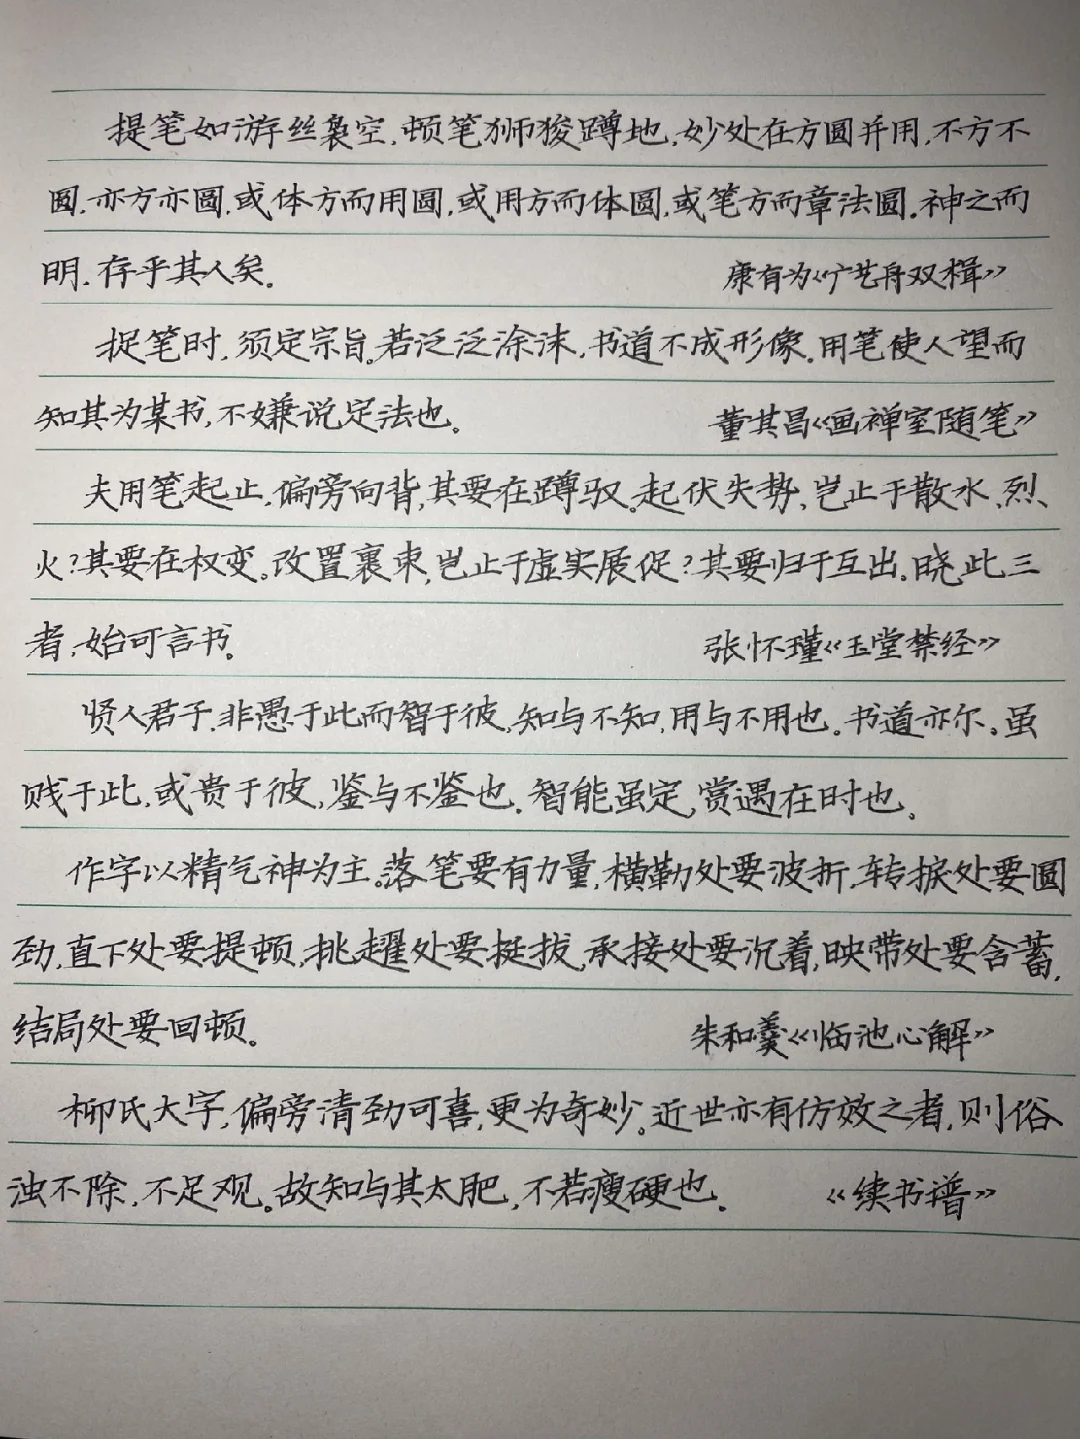 提笔如游丝袅空,顿笔狮狻蹲地,妙处在方圆并用,不方不
圆,亦方亦圆,或体方而用圆,或用方而体圆,或笔方而章法圆。神之而
明,存乎其人矣。 康有为《广艺舟双楫》
捉笔时,须定宗旨。若泛泛涂沫,书道不成形像。用笔使人望而
知其为某书,不嫌说定法也。 董其昌《画禅室随笔》
夫用笔起止,偏旁向背,其要在蹲驭。起伏失势,岂止于散水、烈
火?其要在权变。改置裹束,岂止于虚实展促?其要归于互出。晓此三
者,始可言书。 张怀瑾《玉堂禁经》
贤人君子,非愚于此而智于彼,知与不知,用与不用也。书道亦尔。虽
贱于此,或贵于彼,鉴与不鉴也。智能虽定,赏遇在时也。
作字以精气神为主。落笔要有力量,横勒处要波折,转捩处要圆
劲,直下处要提顿,挑趯处要挺拔,承接处要沉着,映带处要含蓄,
结局处要回顿。 朱和羹《临池心解》
柳氏大字,偏旁清劲可喜,更为奇妙。近世亦有仿效之者,则俗
浊不除,不足观。故知与其太肥,不若瘦硬也。 《续书谱》